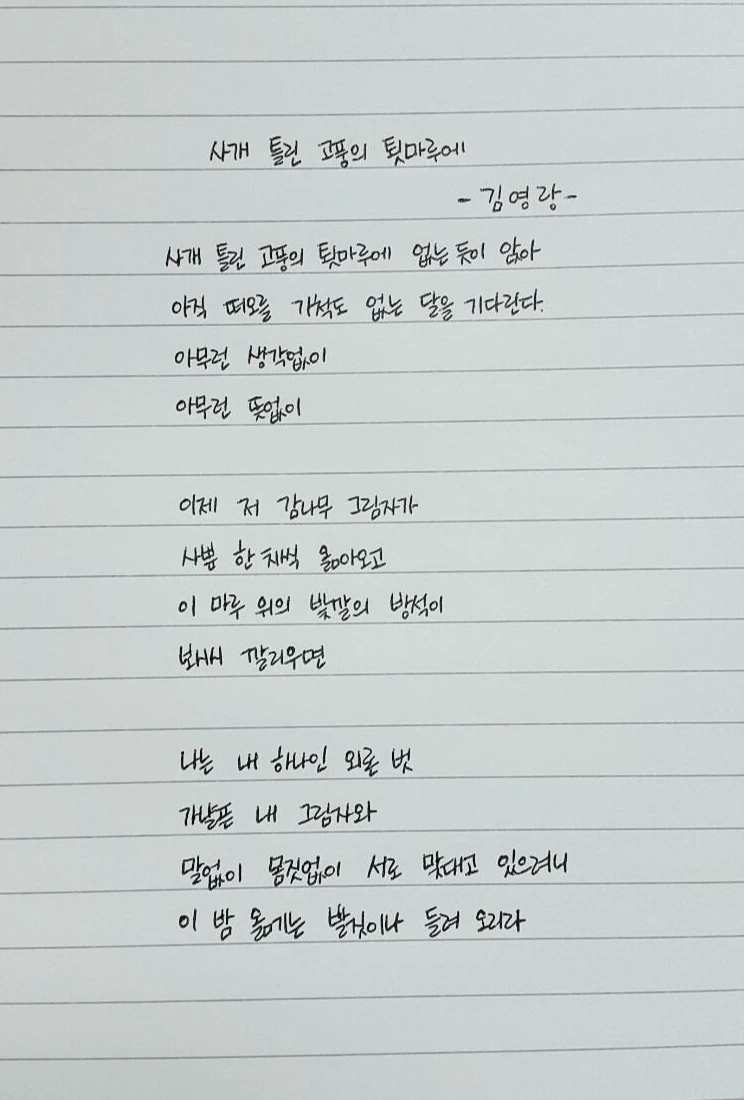 사개 틀린 고풍의 툇마루에
- 김영랑 -
사개 틀린 고풍의 툇마루에 없는 듯이 앉아
아직 떠오를 기척도 없는 달을 기다린다.
아무런 생각없이
아무런 뜻없이
이제 저 감나무 그림자가
사뿐 한 치씩 옮아오고
이 마루 위의 빛깔의 방석이
보시시 깔리우면
나는 내 하나인 외론 벗
가냘픈 내 그림자와
말없이 몸짓없이 서로 맞대고 있으려니
이 밤 옮기는 발짓이나 들려 오리라